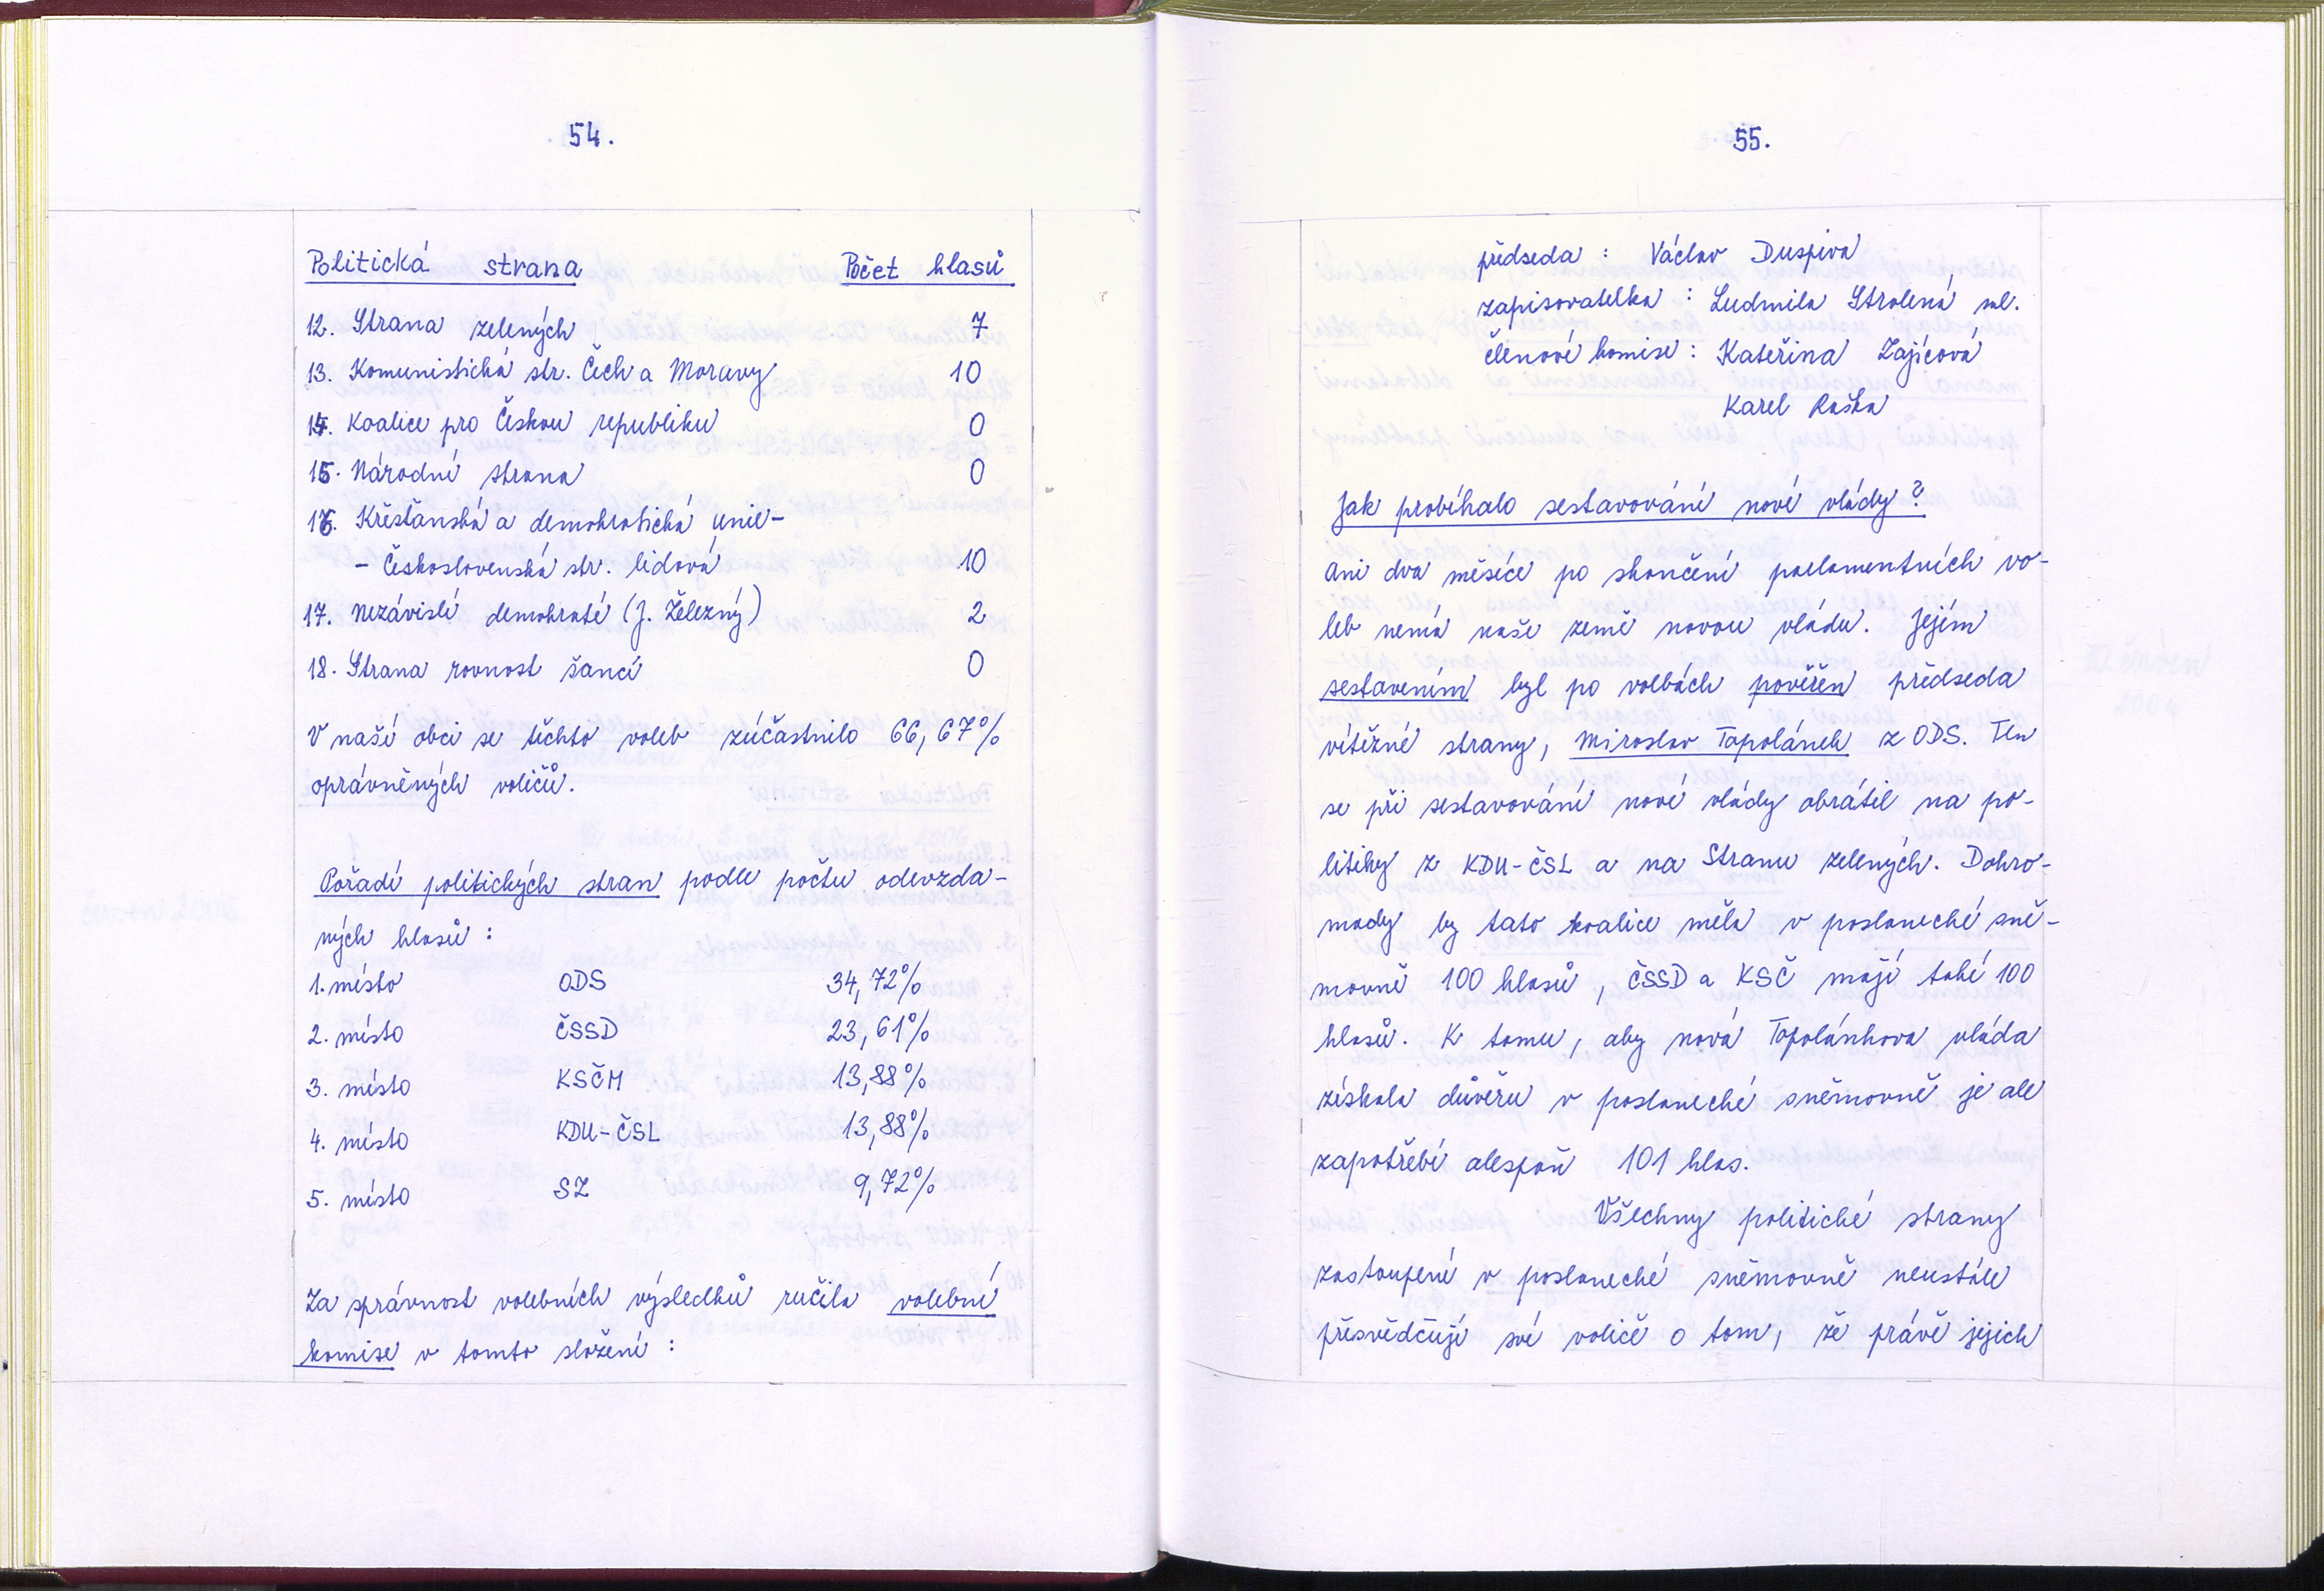 54.
Politická strana Počet hlasů
12. Strana zelených 7
13. Komunistická str. Čech a Moravy 10
14. Koalice pro Českou republiku 0
15. Národní strana 0
16. Křesťanská a demokratická unie-
- Československá str. lidová 10
17. Nezávislí demokraté (J. Železný) 2
18. Strana rovnost šancí 0
V naší obci se těchto voleb zúčastnilo 66,67%
oprávněných voličů.
Pořadí politických stran podle počtu odevzda-
ných hlasů :
1. místo ODS 34,72%
2. místo ČSSD 23,61%
3. místo KSČM 13,88%
4. místo KDU-ČSL 13,88%
5. místo SZ 9,72%
Za správnost volebních výsledků ručila volební
komise v tomto složení :
55.
předseda : Václav Duspiva
zapisovatelka : Ludmila Strolená ml.
členové komise : Kateřina Zajícová
Karel Raška
Jak probíhalo sestavování nové vlády?
Ani dva měsíce po skončení parlamentních vo-
leb nemá naše země novou vládu. Jejím
sestavením byl po volbách pověřen předseda
vítězné strany, Miroslav Topolánek z ODS. Ten
se při sestavování nové vlády obrátil na po-
litiky z KDU-ČSL a na Stranu zelených. Dohro-
mady by tato koalice měla v poslanecké sně-
movně 100 hlasů, ČSSD a KSČ mají také 100
hlasů. K tomu, aby nová Topolánkova vláda
získala důvěru v poslanecké sněmovně je ale
zapotřebí alespoň 101 hlas.
Všechny politické strany
zastoupené v poslanecké sněmovně neustále
přesvědčují své voliče o tom, že právě jejich